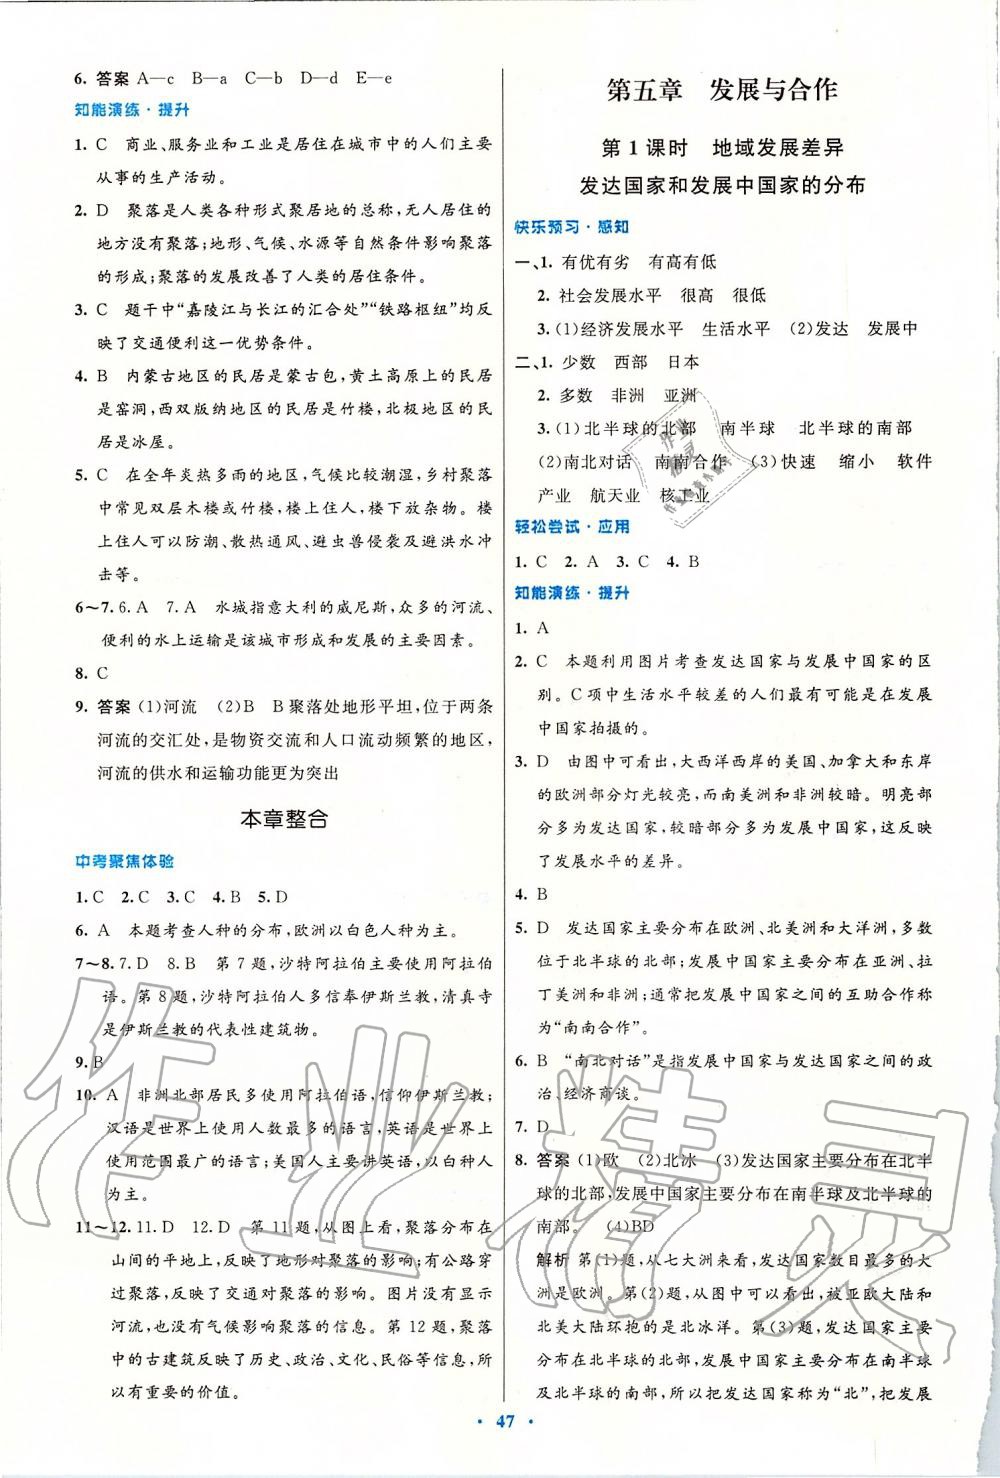 6. 答案 A—c　B—a　C—b　D—d　E—e
知能演练·提升
1. C　商业、服务业和工业是居住在城市中的人们主要
从事的生产活动。
2. D　聚落是人类各种形式聚居地的总称,无人居住的
地方没有聚落;地形、气候、水源等自然条件影响聚落
的形成;聚落的发展改善了人类的居住条件。
3. C　题干中“嘉陵江与长江的汇合处”“铁路枢纽”均反
映了交通便利这一优势条件。
4. B　内蒙古地区的民居是蒙古包,黄土高原上的民居
是窑洞,西双版纳地区的民居是竹楼,北极地区的民
居是冰屋。
5. C　在全年炎热多雨的地区,气候比较潮湿,乡村聚落
中常见双层木楼或竹楼,楼上住人,楼下放杂物。楼
上住人可以防潮、散热通风、避虫兽侵袭及避洪水冲
击等。
6～7. 6. A　7. A　水城指意大利的威尼斯,众多的河流、
便利的水上运输是该城市形成和发展的主要因素。
8. C
9. 答案 (1)河流　(2)B　B聚落处地形平坦,位于两条
河流的交汇处,是物资交流和人口流动频繁的地区,
河流的供水和运输功能更为突出
本章整合
中考聚焦体验
1. C　2. C　3. C　4. B　5. D
6. A　本题考查人种的分布,欧洲以白色人种为主。
7～8. 7. D　8. B　第7题,沙特阿拉伯主要使用阿拉伯
语。第8题,沙特阿拉伯人多信奉伊斯兰教,清真寺
是伊斯兰教的代表性建筑物。
9. B
10. A　非洲北部居民多使用阿拉伯语,信仰伊斯兰教;
汉语是世界上使用人数最多的语言,英语是世界上
使用范围最广的语言;美国人主要讲英语,以白种人
为主。
11～12. 11. D　12. D　第11题,从图上看,聚落分布在
山间的平地上,反映了地形对聚落的影响;有公路穿
过聚落,反映了交通对聚落的影响。图片没有显示
河流,也没有气候影响聚落的信息。第12题,聚落
中的古建筑反映了历史、政治、文化、民俗等信息,所
以有重要的价值。
第五章　发展与合作
第1课时　地域发展差异
发达国家和发展中国家的分布
快乐预习·感知
一、1. 有优有劣　有高有低
2. 社会发展水平　很高　很低
3. (1)经济发展水平　生活水平　(2)发达　发展中
二、1. 少数　西部　日本
2. 多数　非洲　亚洲
3. (1)北半球的北部　南半球　北半球的南部
(2)南北对话　南南合作　(3)快速　缩小　软件
产业　航天业　核工业
轻松尝试·应用
1. C　2. A　3. C　4. B
知能演练·提升
1. A
2. C　本题利用图片考查发达国家与发展中国家的区
别。C项中生活水平较差的人们最有可能是在发展
中国家拍摄的。
3. D　由图中可看出,大西洋西岸的美国、加拿大和东岸
的欧洲部分灯光较亮,而南美洲和非洲较暗。明亮部
分多为发达国家,较暗部分多为发展中国家,这反映
了发展水平的差异。
4. B
5. D　发达国家主要分布在欧洲、北美洲和大洋洲,多数
位于北半球的北部;发展中国家主要分布在亚洲、拉
丁美洲和非洲;通常把发展中国家之间的互助合作称
为“南南合作”。
6. B　“南北对话”是指发展中国家与发达国家之间的政
治、经济商谈。
7. D
8. 答案 (1)欧　(2)北冰　(3)发达国家主要分布在北半
球的北部,发展中国家主要分布在南半球及北半球的
南部。　(4)BD
解析 第(1)题,从七大洲来看,发达国家数目最多的大
洲是欧洲。第(2)题,从图中可以看出,被亚欧大陆和
北美大陆环抱的是北冰洋。第(3)题,发达国家主要
分布在北半球的北部,发展中国家主要分布在南半球
及北半球的南部,所以把发达国家称为“北”,把发展
·47·
作业精灵